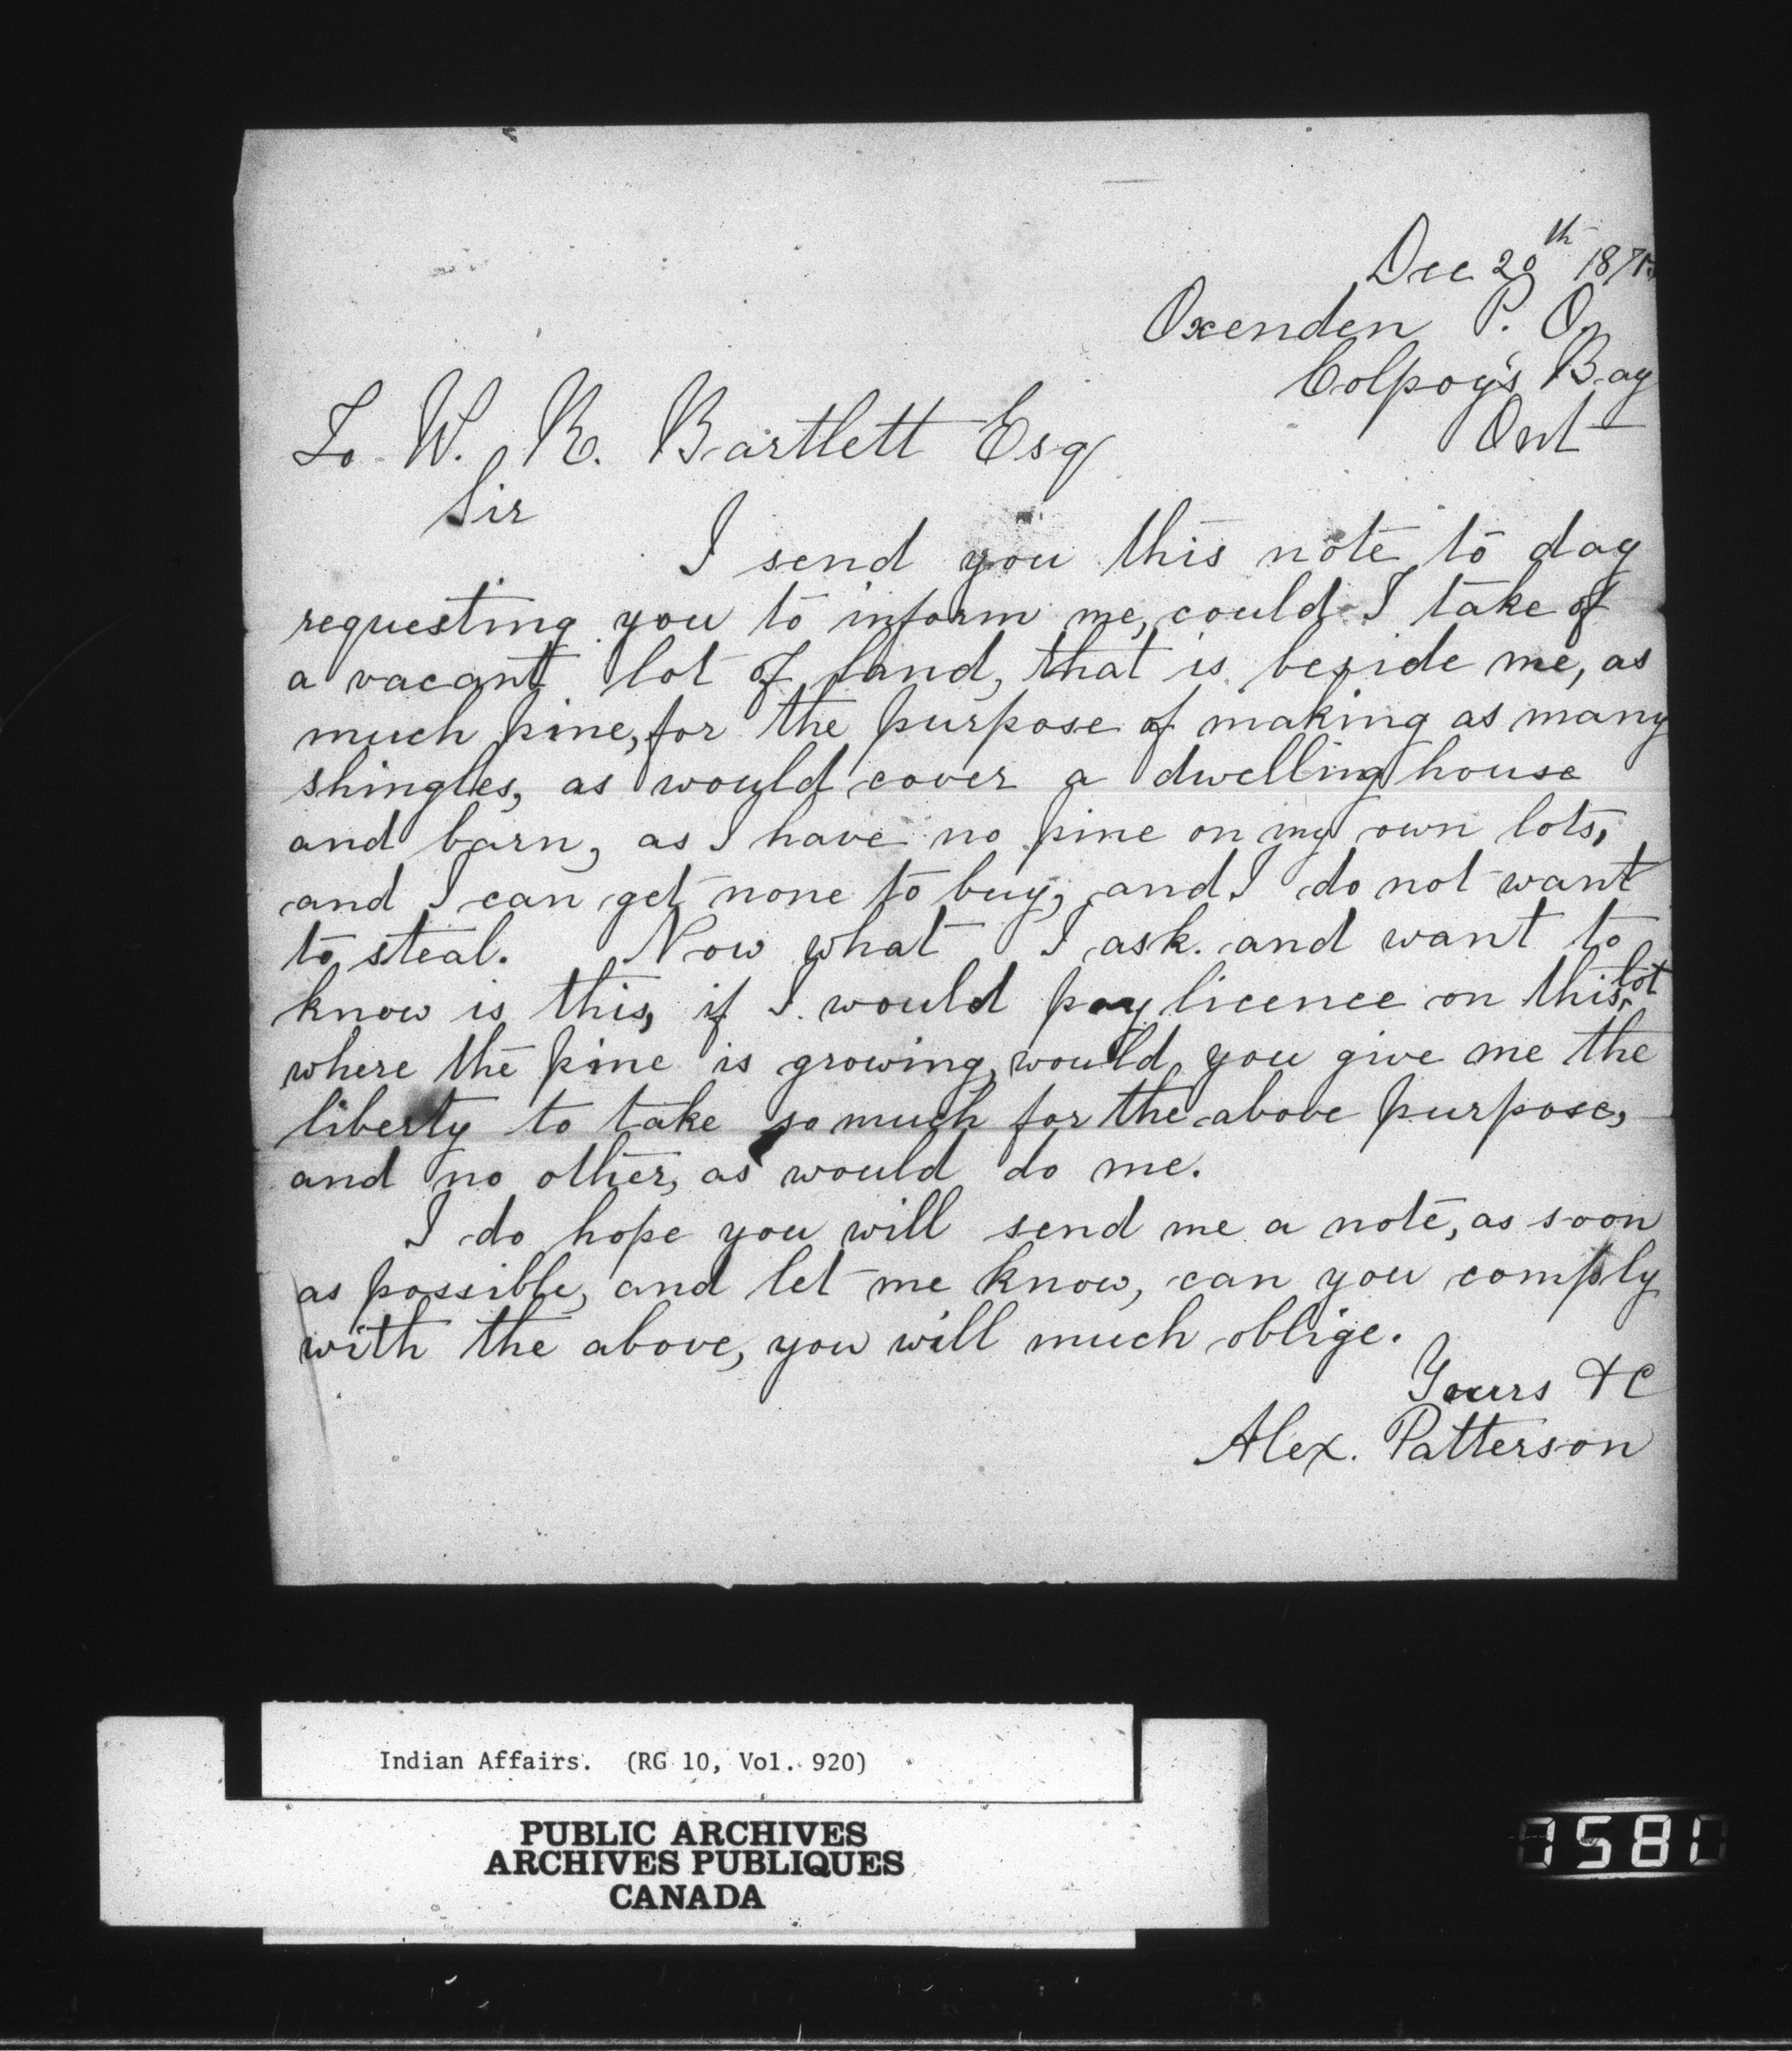 Dec 20th 1875
Oxenden P. O.
Colpoy's Bay
Ont
To W. R. Bartlett Esq
Sir
I send you this note to day
requesting you to inform me, could I take of
a vacant lot of land, that is beside me, as
much pine, for the purpose of making as many
shingles, as would cover a dwelling house
and barn, as I have no pine on my own lots,
and I can get none to buy, and I do not want
to steal. Now what I ask. and want to
know is this, if I would pay licence on this lot
where the pine is growing, would you give me the
liberty to take so much for the above purpose,
and no other, as would do me.
I do hope you will send me a note, as soon
as possible, and let me know, can you comply
with the above, you will much oblige.
Yours &C
Alex. Patterson
Indian Affairs. (RG 10, Vol. 920)
PUBLIC ARCHIVES
ARCHIVES PUBLIQUES
CANADA
7581